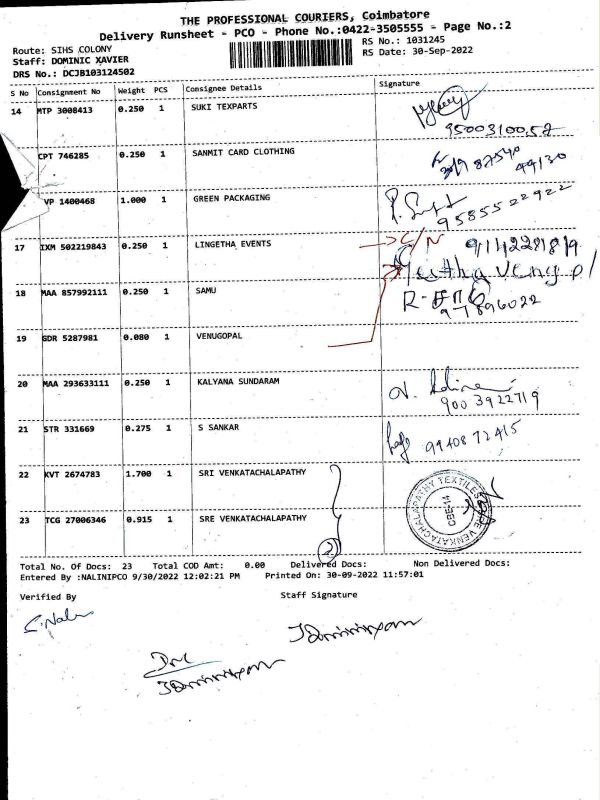 THE PROFESSIONAL COURIERS, Coimbatore
Delivery Runsheet - PCO - Phone No.:0422-3505555 - Page No.:2
Route: SIHS COLONY
RS No.: 1031245
Staff: DOMINIC XAVIER
RS Date: 30-Sep-2022
DRS No.: DCJB103124502
S No Consignment No Weight PCS Consignee Details Signature
14 MTP 3008413 0.250 1 SUKI TEXPARTS
9500310052
CPT 746285 0.250 1 SANMIT CARD CLOTHING
87540
49130
VP 1400468 1.000 1 GREEN PACKAGING
9585522922
17 IXM 502219843 0.250 1 LINGETHA EVENTS
18 MAA 857992111 0.250 1 SAMU
19 GDR 5287981 0.080 1 VENUGOPAL
20 MAA 293633111 0.250 1 KALYANA SUNDARAM
9003922719
21 STR 331669 0.275 1 S SANKAR
9940872415
22 KVT 2674783 1.700 1 SRI VENKATACHALAPATHY
23 TCG 27006346 0.915 1 SRE VENKATACHALAPATHY
2
VENKATACHALAPATHY TEXTILES
CBE-14
Total No. Of Docs: 23 Total COD Amt: 0.00 Delivered Docs: Non Delivered Docs:
Entered By :NALINIPCO 9/30/2022 12:02:21 PM Printed On: 30-09-2022 11:57:01
Verified By Staff Signature